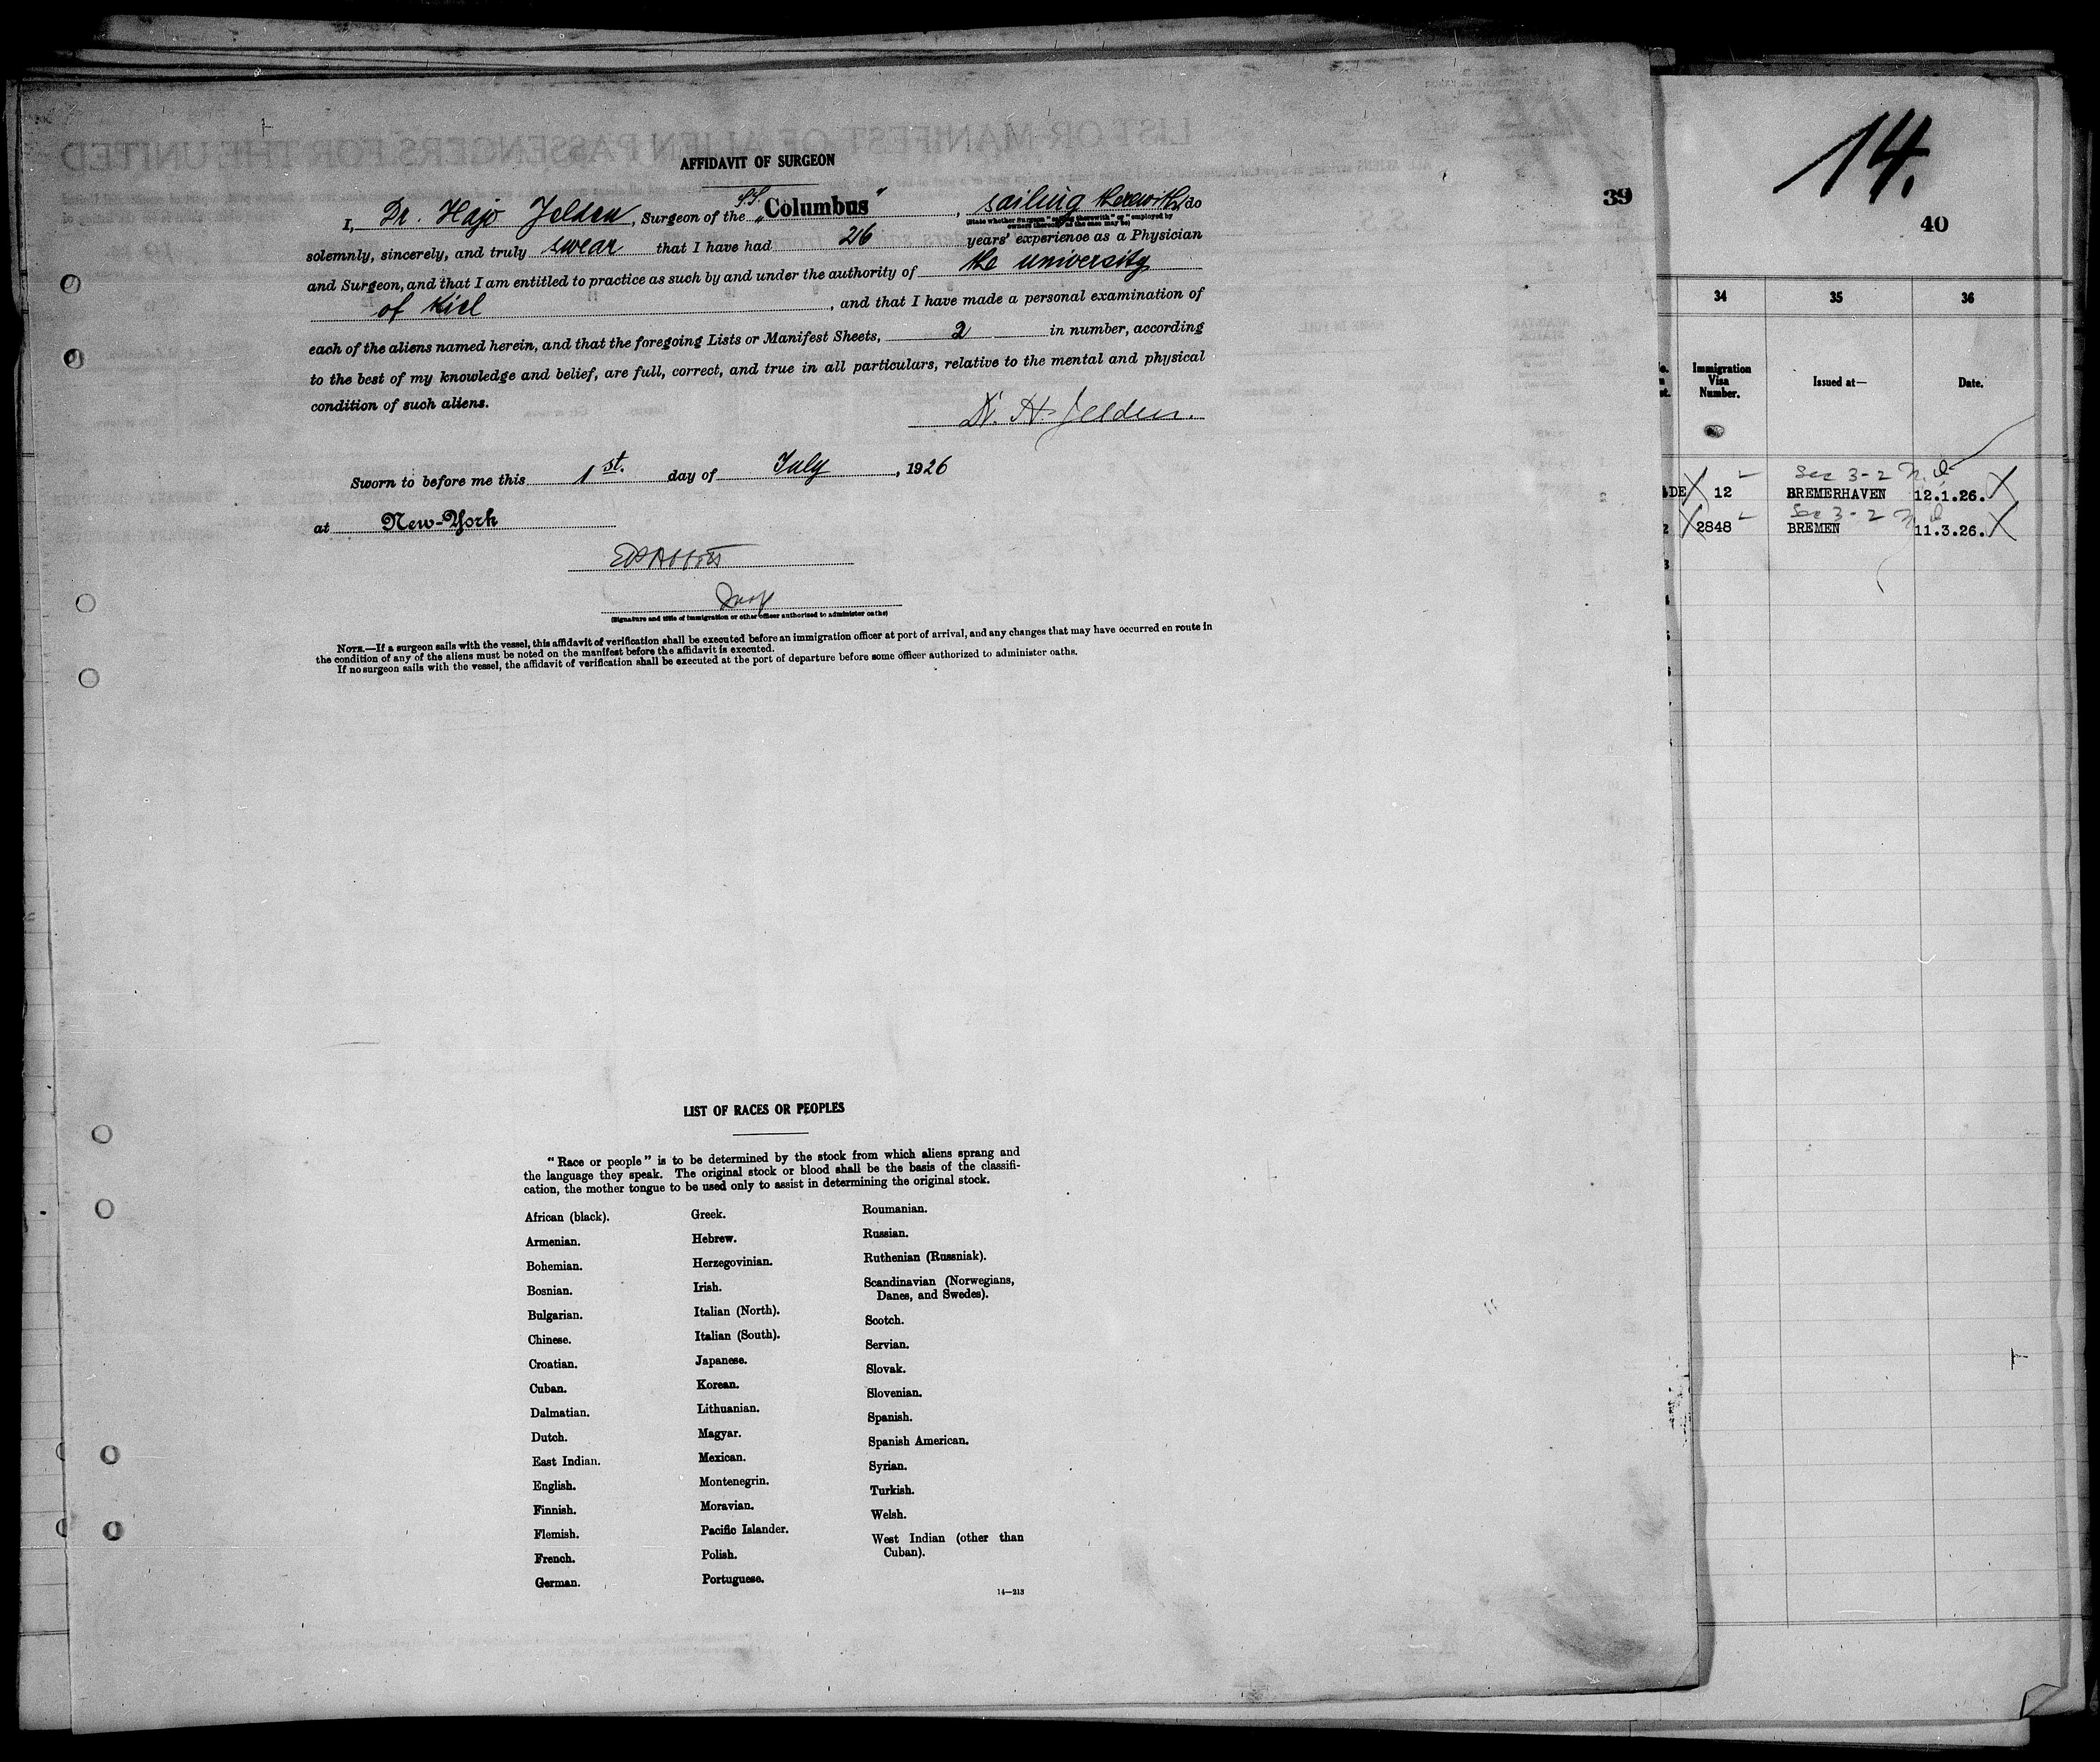 AFFIDAVIT OF SURGEON
I, Dr. Hajo Jelden, Surgeon of the S.S. „Columbus", sailing therewith, do
(State whether Surgeon "sailing therewith" or "employed by owners thereof," as the case may be)
solemnly, sincerely, and truly swear that I have had 26 years' experience as a Physician
and Surgeon, and that I am entitled to practice as such by and under the authority of the university
of Kiel, and that I have made a personal examination of
each of the aliens named herein, and that the foregoing Lists or Manifest Sheets, 2 in number, according
to the best of my knowledge and belief, are full, correct, and true in all particulars, relative to the mental and physical
condition of such aliens.
Dr. H. Jelden.
Sworn to before me this 1st. day of July, 1926
at New-York
(Signature and title of immigration or other officer authorized to administer oaths)
NOTE.—If a surgeon sails with the vessel, this affidavit of verification shall be executed before an immigration officer at port of arrival, and any changes that may have occurred en route in
the condition of any of the aliens must be noted on the manifest before the affidavit is executed.
If no surgeon sails with the vessel, the affidavit of verification shall be executed at the port of departure before some officer authorized to administer oaths.
LIST OF RACES OR PEOPLES
"Race or people" is to be determined by the stock from which aliens sprang and
the language they speak. The original stock or blood shall be the basis of the classifi-
cation, the mother tongue to be used only to assist in determining the original stock.
African (black).
Armenian.
Bohemian.
Bosnian.
Bulgarian.
Chinese.
Croatian.
Cuban.
Dalmatian.
Dutch.
East Indian.
English.
Finnish.
Flemish.
French.
German.
Greek.
Hebrew.
Herzegovinian.
Irish.
Italian (North).
Italian (South).
Japanese.
Korean.
Lithuanian.
Magyar.
Mexican.
Montenegrin.
Moravian.
Pacific Islander.
Polish.
Portuguese.
Roumanian.
Russian.
Ruthenian (Russniak).
Scandinavian (Norwegians,
Danes, and Swedes).
Scotch.
Servian.
Slovak.
Slovenian.
Spanish.
Spanish American.
Syrian.
Turkish.
Welsh.
West Indian (other than
Cuban).
14—213
39
14.
40
34 35 36
Immigration
Visa
Number.
Issued at—
Date.
Sec 3-2
DE X 12 BREMERHAVEN 12.1.26. X
Sec 3-2
X 2848 BREMEN 11.3.26. X